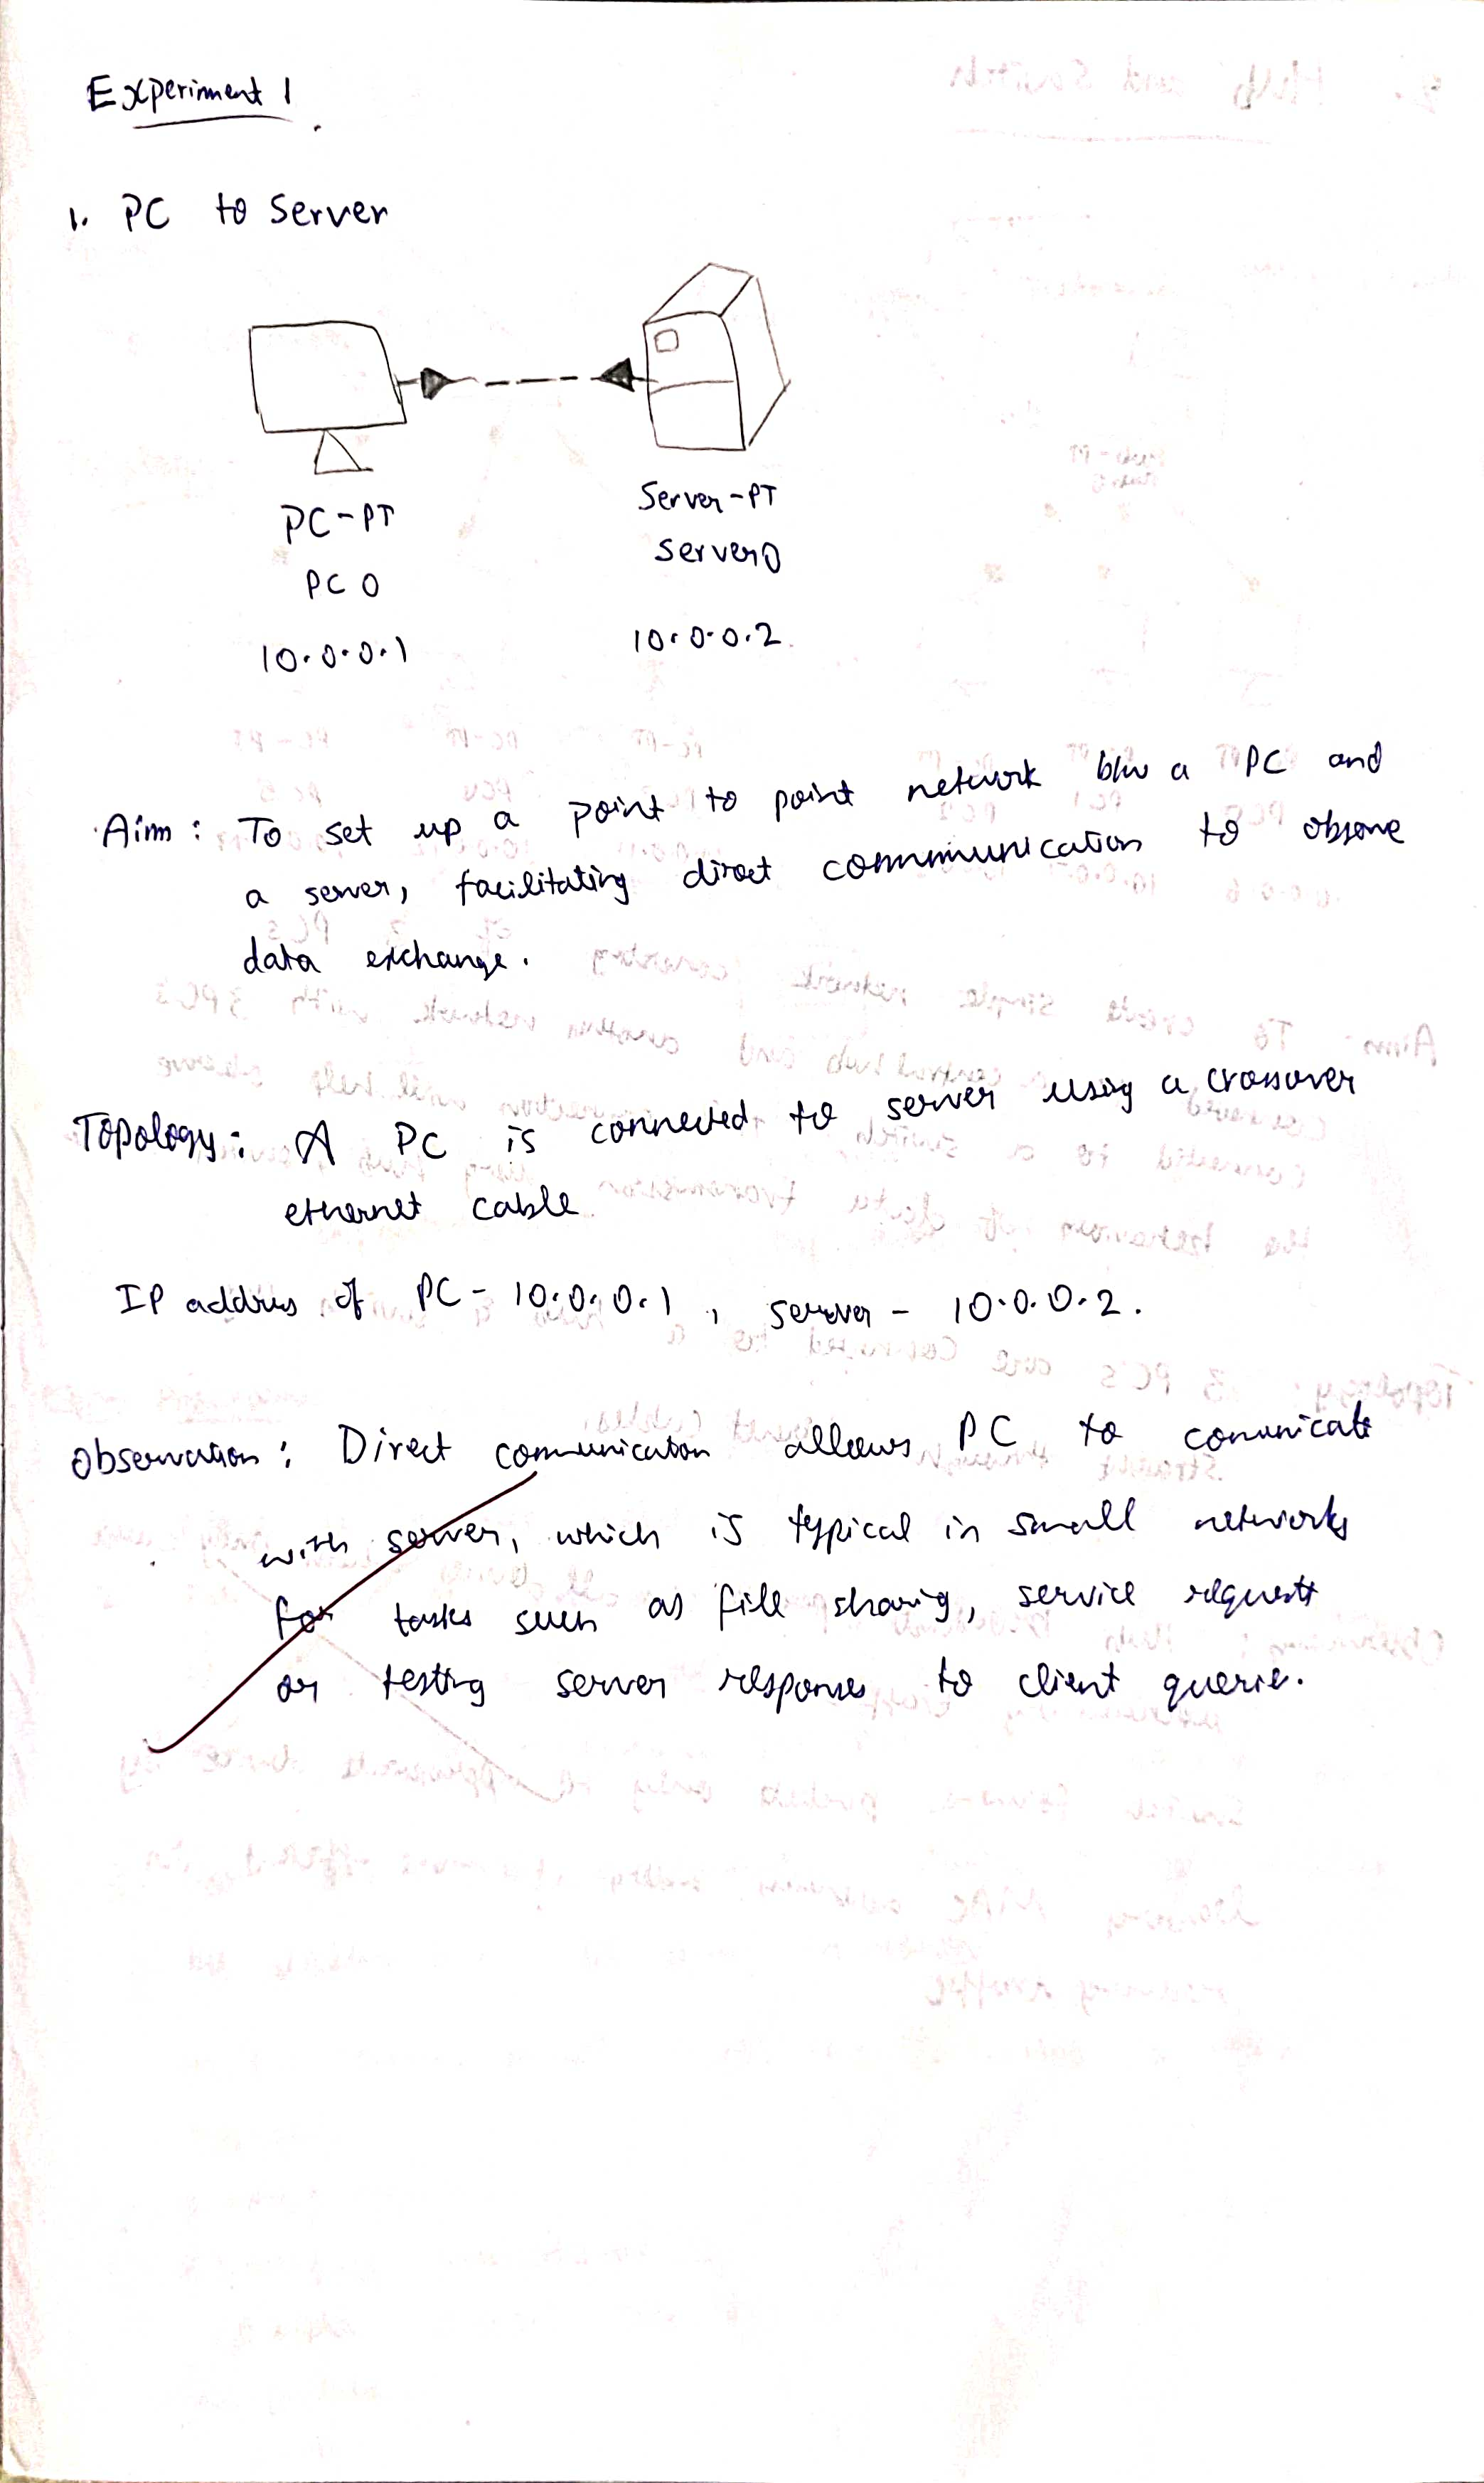 Experiment 1
1. PC to Server
PC-PT
PC 0
10.0.0.1
Server-PT
Server0
10.0.0.2
Aim : To set up a point to point network b/w a PC and
a server, facilitating direct communication to observe
data exchange.
Topology : A PC is connected to server using a crossover
ethernet cable
IP address of PC - 10.0.0.1 , server - 10.0.0.2.
Observation : Direct communication allows PC to comunicate
with server, which is typical in small networks
for tasks such as file sharing, service requests
or testing server responses to client querie.